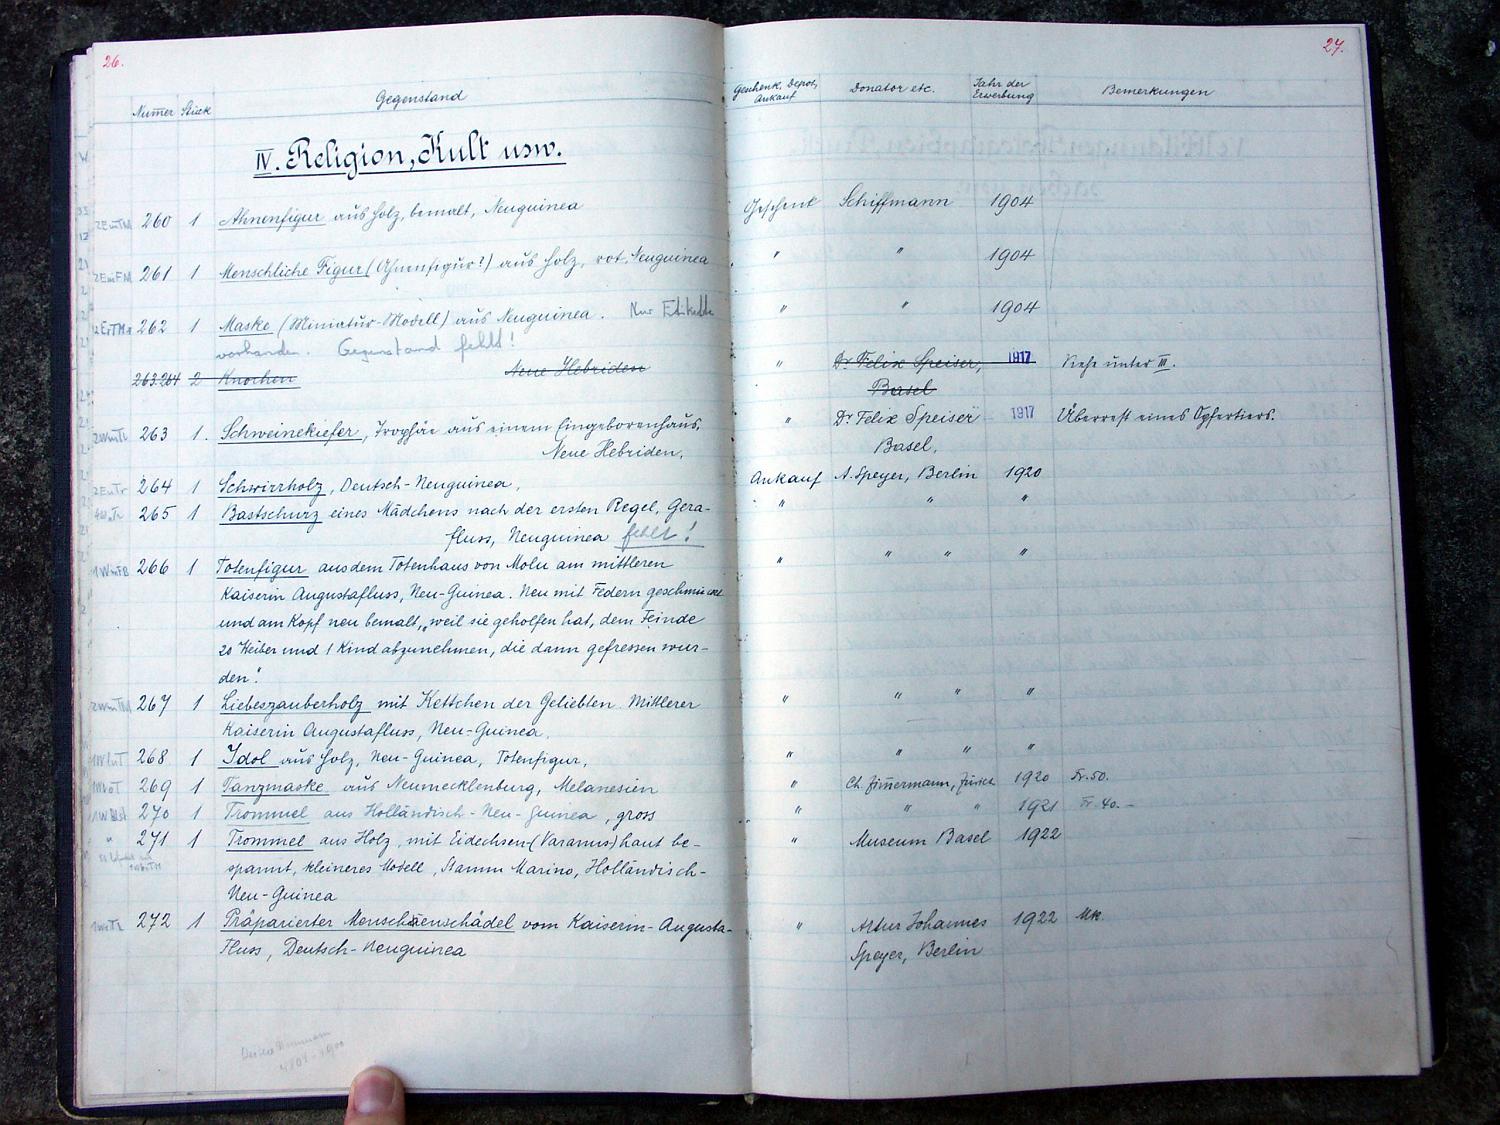 26.
27.
Numer Stück Gegenstand Geschenk, Depot, Ankauf Donator etc. Jahr der Erwerbung Bemerkungen
IV. Religion, Kult usw.
260 1 Ahnenfigur aus Holz, bemalt, Neuguinea Geschenk Schiffmann 1904
261 1 Menschliche Figur (Ahnenfigur?) aus Holz, rot. Neuguinea " " 1904
262 1 Maske (Miniatur-Modell) aus Neuguinea. Nur Etikette " " 1904
vorhanden. Gegenstand fehlt!
263.264 2 Knochen Neue Hebriden " Dr Felix Speiser, 1917 Siehe unter III.
Basel
263 1. Schweinekiefer, Trophäe aus einem Eingeborenhaus, " Dr Felix Speiser 1917 Überrest eines Opfertiers.
Neue Hebriden, Basel,
264 1 Schwirrholz, Deutsch-Neuguinea, Ankauf A. Speyer, Berlin 1920
265 1 Bastschurz eines Mädchens nach der ersten Regel, Gera- " " "
fluss, Neuguinea fehlt!
266 1 Totenfigur aus dem Totenhaus von Molu am mittleren " " " "
Kaiserin Augustafluss, Neu-Guinea. Neu mit Federn geschmückt
und am Kopf neu bemalt, „weil sie geholfen hat, dem Feinde
20 Weiber und 1 Kind abzunehmen, die dann gefressen wur-
den".
267 1 Liebeszauberholz mit Kettchen der Geliebten. Mittlerer " " " "
Kaiserin Augustafluss, Neu-Guinea.
268 1 Idol aus Holz, Neu-Guinea, Totenfigur, " " " "
269 1 Tanzmaske aus Neumecklenburg, Melanesien " Ch. Zimermann, Zürich 1920 Fr. 50.
270 1 Trommel aus Holländisch-Neu-Guinea, gross " " " 1921 Fr. 40.-
271 1 Trommel aus Holz, mit Eidechsen-(Varanus)haut be- " Museum Basel 1922
spannt, kleineres Modell, Stamm Marino, Holländisch-
Neu-Guinea
272 1 Präparierter Menschenschädel vom Kaiserin-Augusta- " Artur Johannes 1922 Mk.
Fluss, Deutsch-Neuguinea Speyer, Berlin